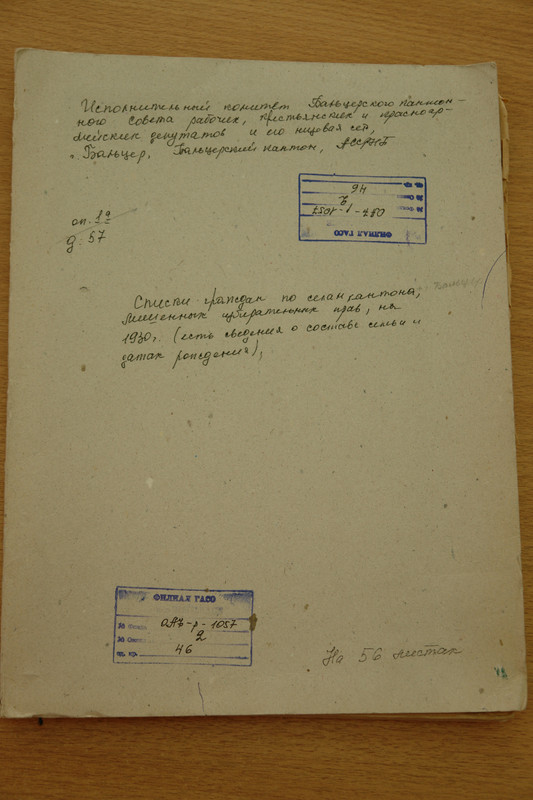 Исполнительный комитет Бальцерского кантон-
ного совета рабочих, крестьянских и красноар-
мейских депутатов и его низовая сеть,
с. Бальцер, Бальцерский кантон, АССРНП
№ Фонда ОАФ-р-1057
№ Описи 2
ед. хр. 46
ФИЛИАЛ ГАСО
оп. 1а
д. 57
Списки граждан по селам кантона,
лишенных избирательных прав, на
1930г. (есть сведения о составе семьи и
датах рождения),
ФИЛИАЛ ГАСО
№ Фонда ОАФ-р-1057
№ Описи 2
ед. хр. 46
На 56 листах